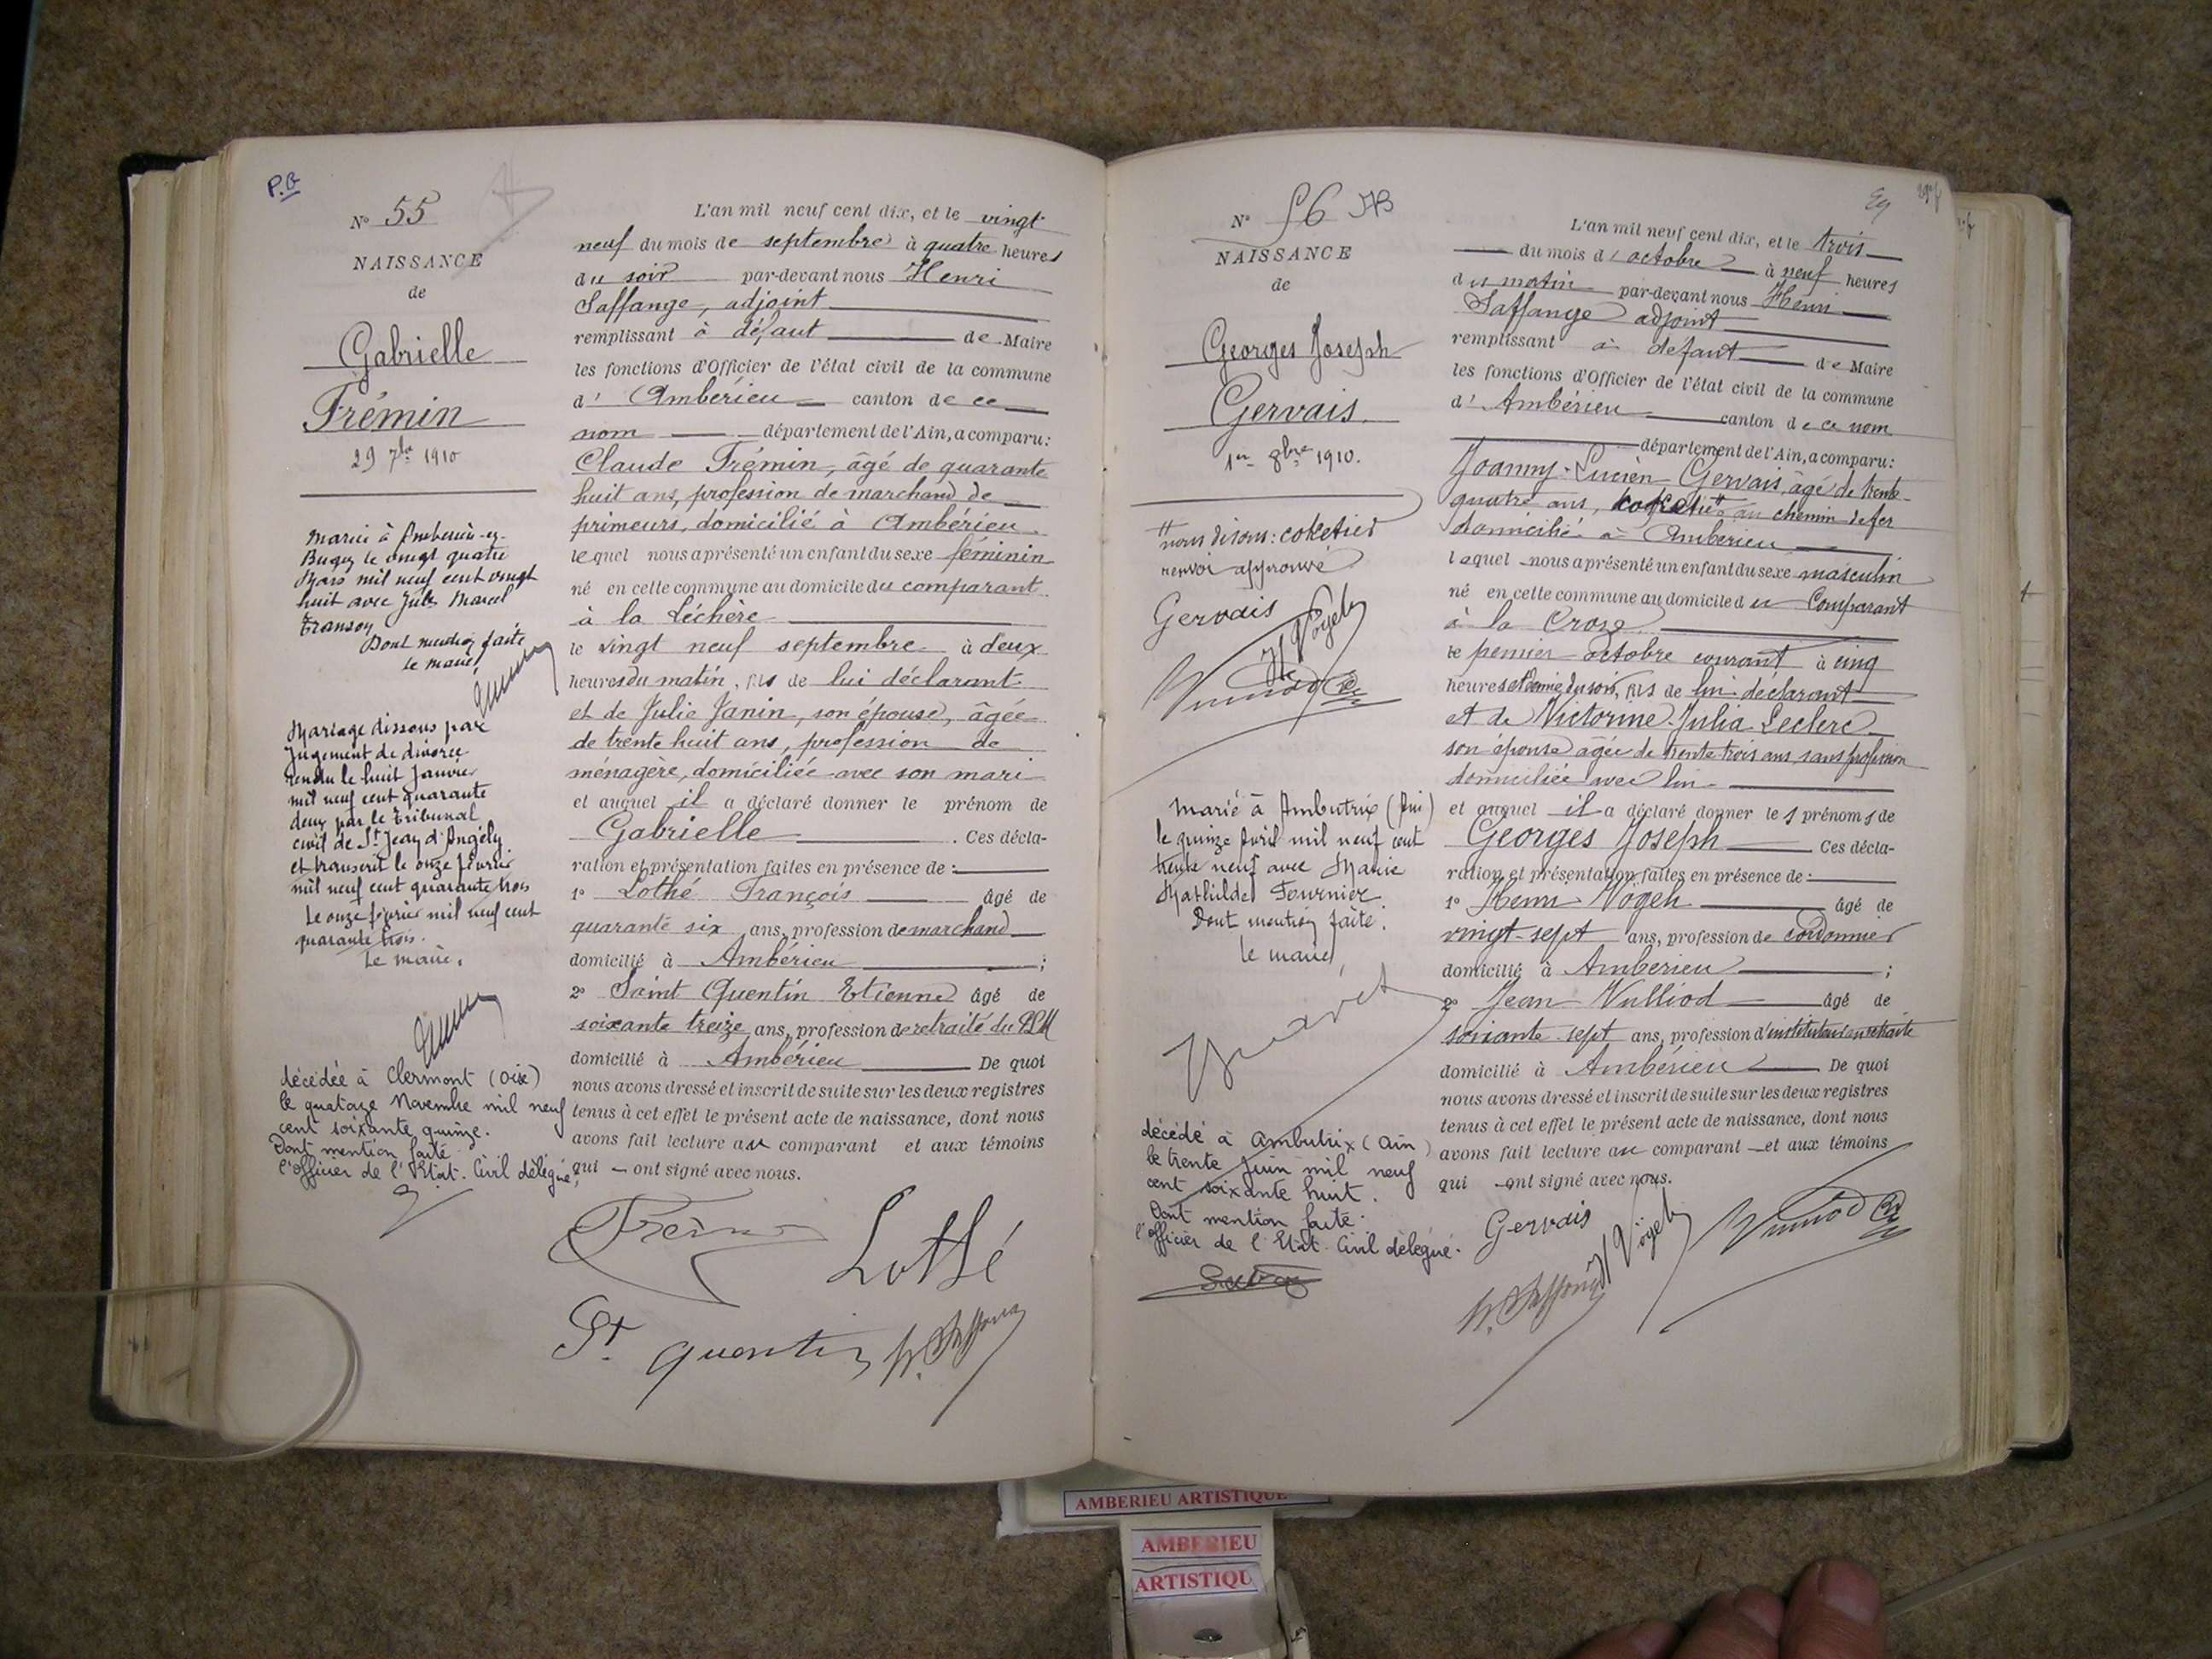 P.B
N° 55
NAISSANCE
de
Gabrielle
Frémin
29 7bre 1910
Mariée à Ambérieu-en-
Bugey le vingt quatre
Mars mil neuf cent vingt
huit avec Jules Marcel
Transon
Dont mention faite
Le maire,
Mariage dissous par
Jugement de divorce
rendu le huit Janvier
mil neuf cent quarante
deux par le Tribunal
civil de St Jean d'Angély
et transcrit le onze février
mil neuf cent quarante trois
Le onze février mil neuf cent
quarante trois.
Le maire,
décédée à Clermont (Oise)
le quatorze Novembre mil neuf
cent soixante quinze.
Dont mention faite
l'officier de l'Etat-Civil délégué,
L'an mil neuf cent dix, et le vingt
neuf du mois de septembre à quatre heures
du soir par-devant nous Henri
Saffange, adjoint
remplissant à défaut de Maire
les fonctions d'Officier de l'état civil de la commune
d' Ambérieu canton de ce
nom département de l'Ain, a comparu:
Claude Frémin, âgé de quarante
huit ans, profession de marchand de
primeurs, domicilié à Ambérieu
lequel nous a présenté un enfant du sexe féminin
né en cette commune au domicile du comparant
à la Léchère
le vingt neuf septembre à deux
heures du matin, fils de lui déclarant
et de Julie Janin, son épouse, âgée
de trente huit ans, profession de
ménagère, domiciliée avec son mari
et auquel il a déclaré donner le prénom de
Gabrielle . Ces décla-
ration et présentation faites en présence de :
1° Lothé François âgé de
quarante six ans, profession de marchand
domicilié à Ambérieu ;
2° Saint Quentin Etienne âgé de
soixante treize ans, profession de retraité du PLM
domicilié à Ambérieu De quoi
nous avons dressé et inscrit de suite sur les deux registres
tenus à cet effet le présent acte de naissance, dont nous
avons fait lecture au comparant et aux témoins
qui ont signé avec nous.
Lothé
St. quentin
N° 56 JB
NAISSANCE
de
Georges Joseph
Gervais
1er 8bre 1910.
nous disons: coketier
renvoi approuvé
Gervais
H Vögeh
marié à Ambutrix (Ain)
le quinze Avril mil neuf cent
trente neuf avec Marie
Mathilde Fournier
Dont mention faite.
Le maire,
décédé à Ambutrix (Ain)
le trente Juin mil neuf
cent soixante huit.
Dont mention faite.
l'officier de l'Etat-Civil délégué.
L'an mil neuf cent dix, et le trois
du mois d'octobre à neuf heures
du matin par-devant nous Henri
Saffange adjoint
remplissant à défaut de Maire
les fonctions d'Officier de l'état civil de la commune
d' Ambérieu canton de ce nom
département de l'Ain, a comparu:
Joanny-Lucien Gervais, âgé de trente-
quatre ans, au chemin de fer
domicilié à Ambérieu
lequel nous a présenté un enfant du sexe masculin
né en cette commune au domicile du Comparant
à la Croze
le premier octobre courant à cinq
heures et demie du soir, fils de lui déclarant
et de Victorine Julia Leclerc
son épouse âgée de trente trois ans, sans profession
domiciliée avec lui
et auquel il a déclaré donner les prénoms de
Georges Joseph Ces décla-
ration et présentation faites en présence de :
1° Henri Vögeh âgé de
vingt-sept ans, profession de cordonnier
domicilié à Ambérieu ;
2° Jean Vulliod âgé de
soixante-sept ans, profession d'instituteur en retraite
domicilié à Ambérieu De quoi
nous avons dressé et inscrit de suite sur les deux registres
tenus à cet effet le présent acte de naissance, dont nous
avons fait lecture au comparant et aux témoins
qui ont signé avec nous.
Gervais
H Vögeh
AMBERIEU ARTISTIQUE
AMBERIEU
ARTISTIQU